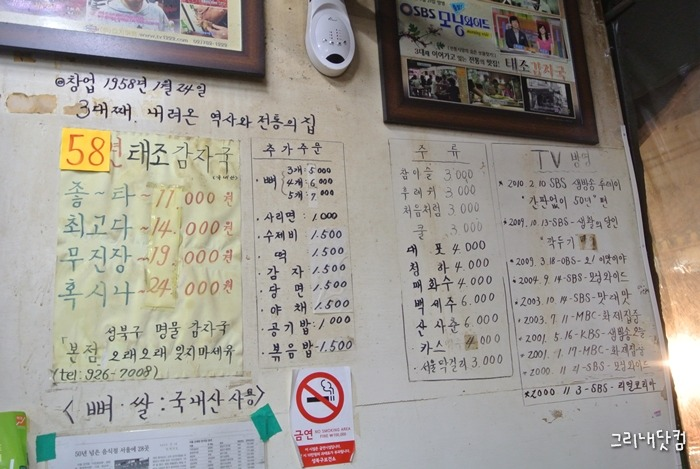 SBS 모닝와이드
3대째 이어가고 있는 전통의 맛집!
태조감자국
@창업 1958년 1월 24일
3대째. 내려온 역사와 전통의 집
58년 태조감자국
좋~타~11.000원
최고다~14.000원
무진장~19.000원
혹시나~24.000원
성북구 명물 감자국
「본점 오래오래 잊지마세유
(tel: 926-7008)
<뼈·쌀:국내산 사용>
추가주문
·뼈
3개: 5.000
4개: 6.000
5개: 7.000
·사리면: 1.000
·수제비: 1.500
·떡: 1.500
·감자: 1.500
·당면: 1.500
·야채: 1.500
·공기밥: 1.000
·볶음밥-1.500
주류
참이슬 3.000
후레쉬 3.000
처음처럼 3.000
쿨 3.000
대포 4.000
청하 4.000
매화수 4.000
백세주 6.000
산사춘 6.000
카스 4.000
·서울막걸리 3.000
TV방영
*2010. 2.10 SBS-생방송 투데이
"간판없이 50년" 편
*2009.10.13-SBS-생활의 달인
"깍두기
*2009. 3.18
*2004. 9.14-SBS-모닝와이드
*2003.10.14-SBS-맛대맛
*2003. 7.11-MBC-화제집중
*2001. 5.16-KBS-생방송오늘
*2001. 1.17-MBC-화제집중
*2000. 11.21-SBS-모닝와이드
*2000 11.3-SBS-리얼코리아
금연
NO SMOKING AREA
성북구보건소
50년 넘은 음식점 서울에 28곳
그리내닷컴